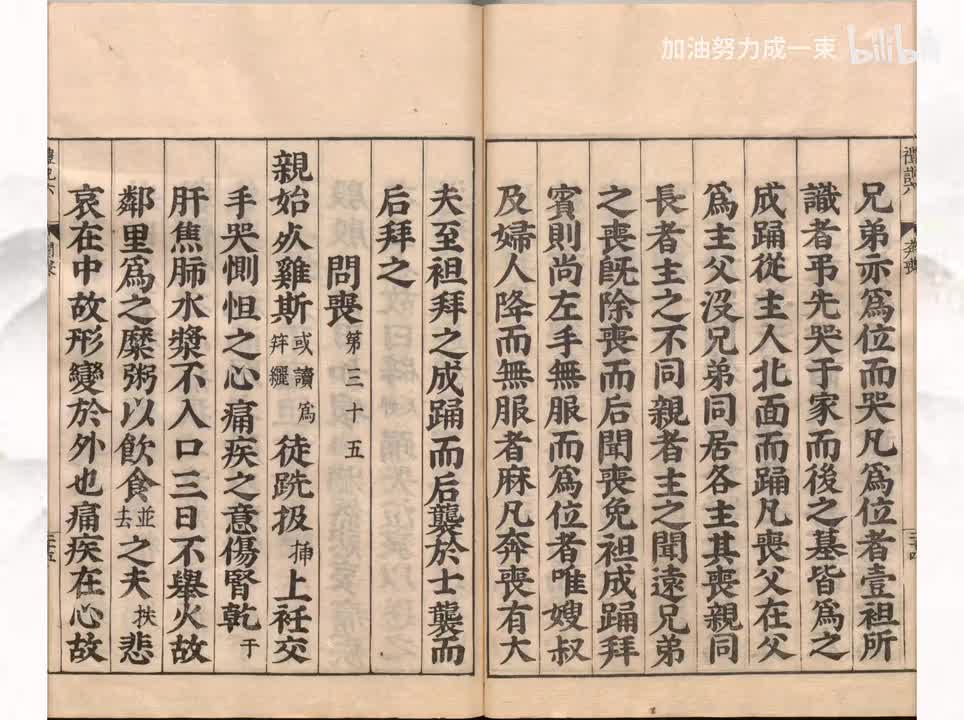 加油努力成一束 bilibili
兄弟亦爲位而哭凡爲位者壹袒所
識者弔先哭于家而後之墓皆爲之
成踊從主人北面而踊凡喪父在父
爲主父沒兄弟同居各主其喪親同
長者主之不同親者主之聞遠兄弟
之喪旣除喪而后聞喪免袒成踊拜
賓則尚左手無服而爲位者唯嫂叔
及婦人降而無服者麻凡奔喪有大
夫至袒拜之成踊而后襲於士襲而
后拜之
問喪第三十五
親始死雞斯或讀爲筓纚徒跣扱揷上衽交
手哭惻怛之心痛疾之意傷腎乾于
肝焦肺水漿不入口三日不舉火故
鄰里爲之糜粥以飲食並去之夫扶悲
哀在中故形變於外也痛疾在心故